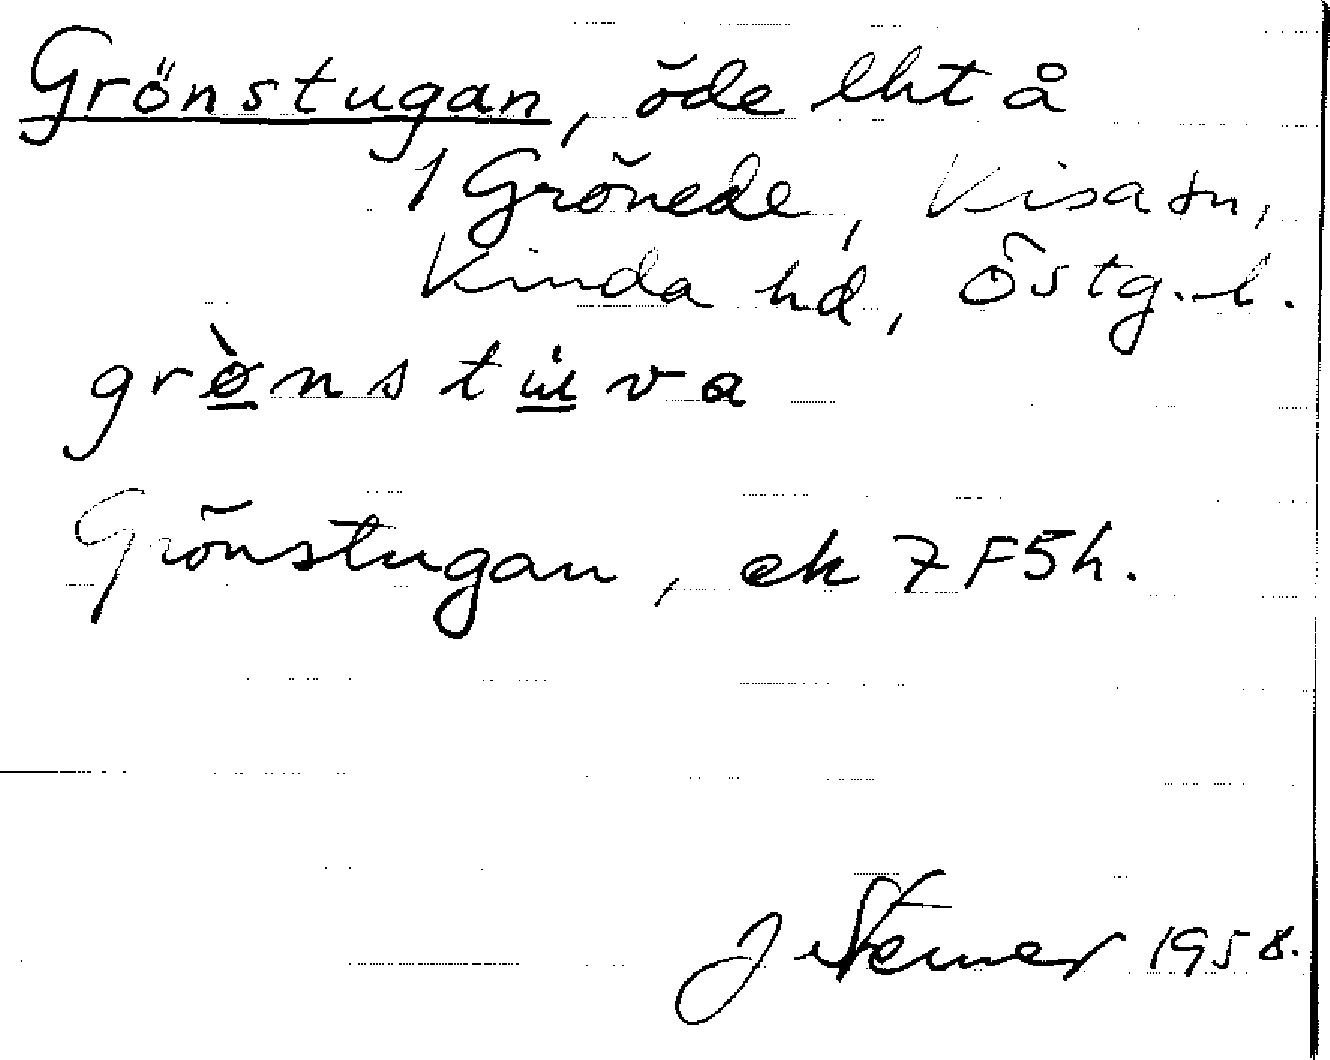 Grönstugan, öde lht å
1 Grönede, Kisa sn,
Kinda hd, Östg. l.
grònstu̇va
Grönstugan, ek 7F5h.
J 1958.